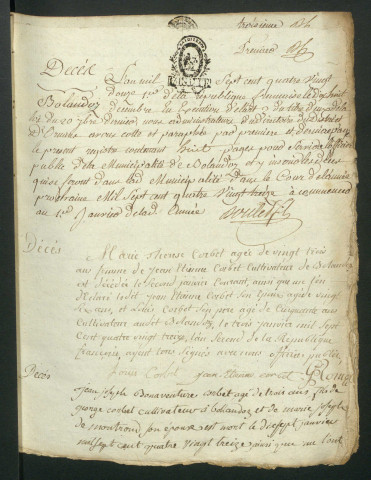 troisième
Premier
Décès
L'an mil Sept cent quatre Vingt
douze de la république française le dix huit
Bolandoz
decembre En Execution d'
dernier nous administrateur du district
d'Ornans avons cotté et paraphé par premiere et derniere page
le present registre contenant huit pages pour servir a l'officier
public de la Municipalité de Bolandoz et y inscrire les deces
qui se feront dans lad Municipalité dans le Cour de l'année
prochaine Mil Sept cent quatre Vingt treize a commencer
au 1er Janvier de lad. Année
Décès
Marie therese Corbet agée de vingt trois
ans femme de Jean Etienne Corbet Cultivateur de Bolandoz
est décédée le Second janvier Courant, ainsi que me l'on
déclaré ledit jean Etienne Corbet son Epoux agée vingt
six ans, et Louis Corbet son pere age de Cinquante ans
Cultivateur audit Bolandoz, le trois janvier mil Sept
Cent quatre vingt treize, l'an Second de la République
française, ayant tous signés avec nous officier public
Louis Corbet Jean Etienne Corbet
Décès
jean joseph Bonaventure corbet agé de trois ans fils de
george corbet cultivateur a bolandoz et de marie joseph
de montrond son épouse est mort le dix sept janvier
mil sept cent quatre vingt treize ainsi que me l'ont